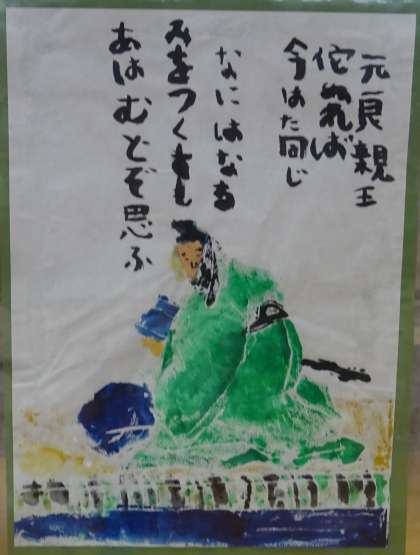 元良親王
侘ぬれば
今はた同じ
なにはなる
みをつくしても
あはむとぞ思ふ